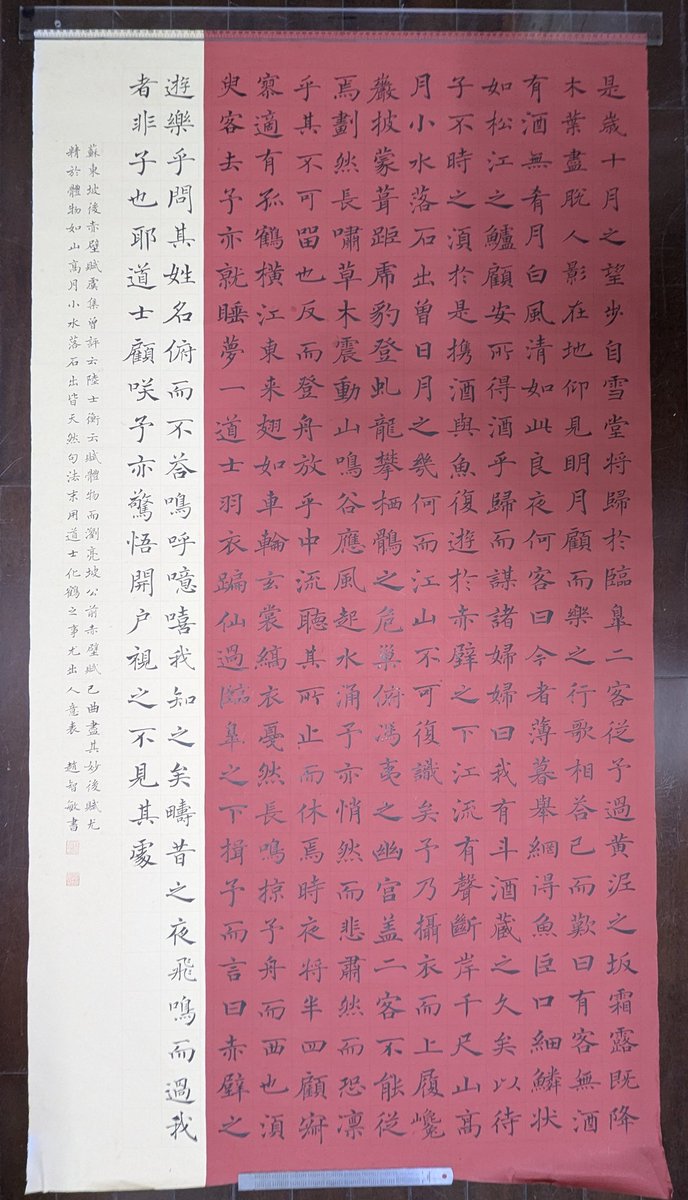 是歲十月之望步自雪堂將歸於臨皋二客從予過黃泥之坂霜露既降
木葉盡脫人影在地仰見明月顧而樂之行歌相答已而歎曰有客無酒
有酒無肴月白風清如此良夜何客曰今者薄暮舉網得魚巨口細鱗狀
如松江之鱸顧安所得酒乎歸而謀諸婦婦曰我有斗酒藏之久矣以待
子不時之湏於是攜酒與魚復遊於赤壁之下江流有聲斷岸千尺山高
月小水落石出曾日月之幾何而江山不可復識矣予乃攝衣而上履巉
巖披蒙茸距虎豹登虬龍攀栖鶻之危巢俯馮夷之幽宮盖二客不能從
焉劃然長嘯草木震動山鳴谷應風起水涌予亦悄然而悲肅然而恐凛
乎其不可留也反而登舟放乎中流聽其所止而休焉時夜將半四顧寂
寥適有孤鶴橫江東来翅如車輪玄裳縞衣戛然長鳴掠予舟而西也湏
臾客去予亦就睡夢一道士羽衣蹁仙過臨皋之下揖予而言曰赤壁之
遊樂乎問其姓名俯而不荅嗚呼噫嘻我知之矣疇昔之夜飛鳴而過我
者非子也耶道士顧咲予亦驚悟開户視之不見其處
蘇東坡後赤壁賦虞集曾評云陸士衡云賦體物而瀏亮坡公前赤壁賦已曲盡其妙後賦尤
精於體物如山高月小水落石出皆天然句法末用道士化鶴之事尤出人意表 趙智敏書